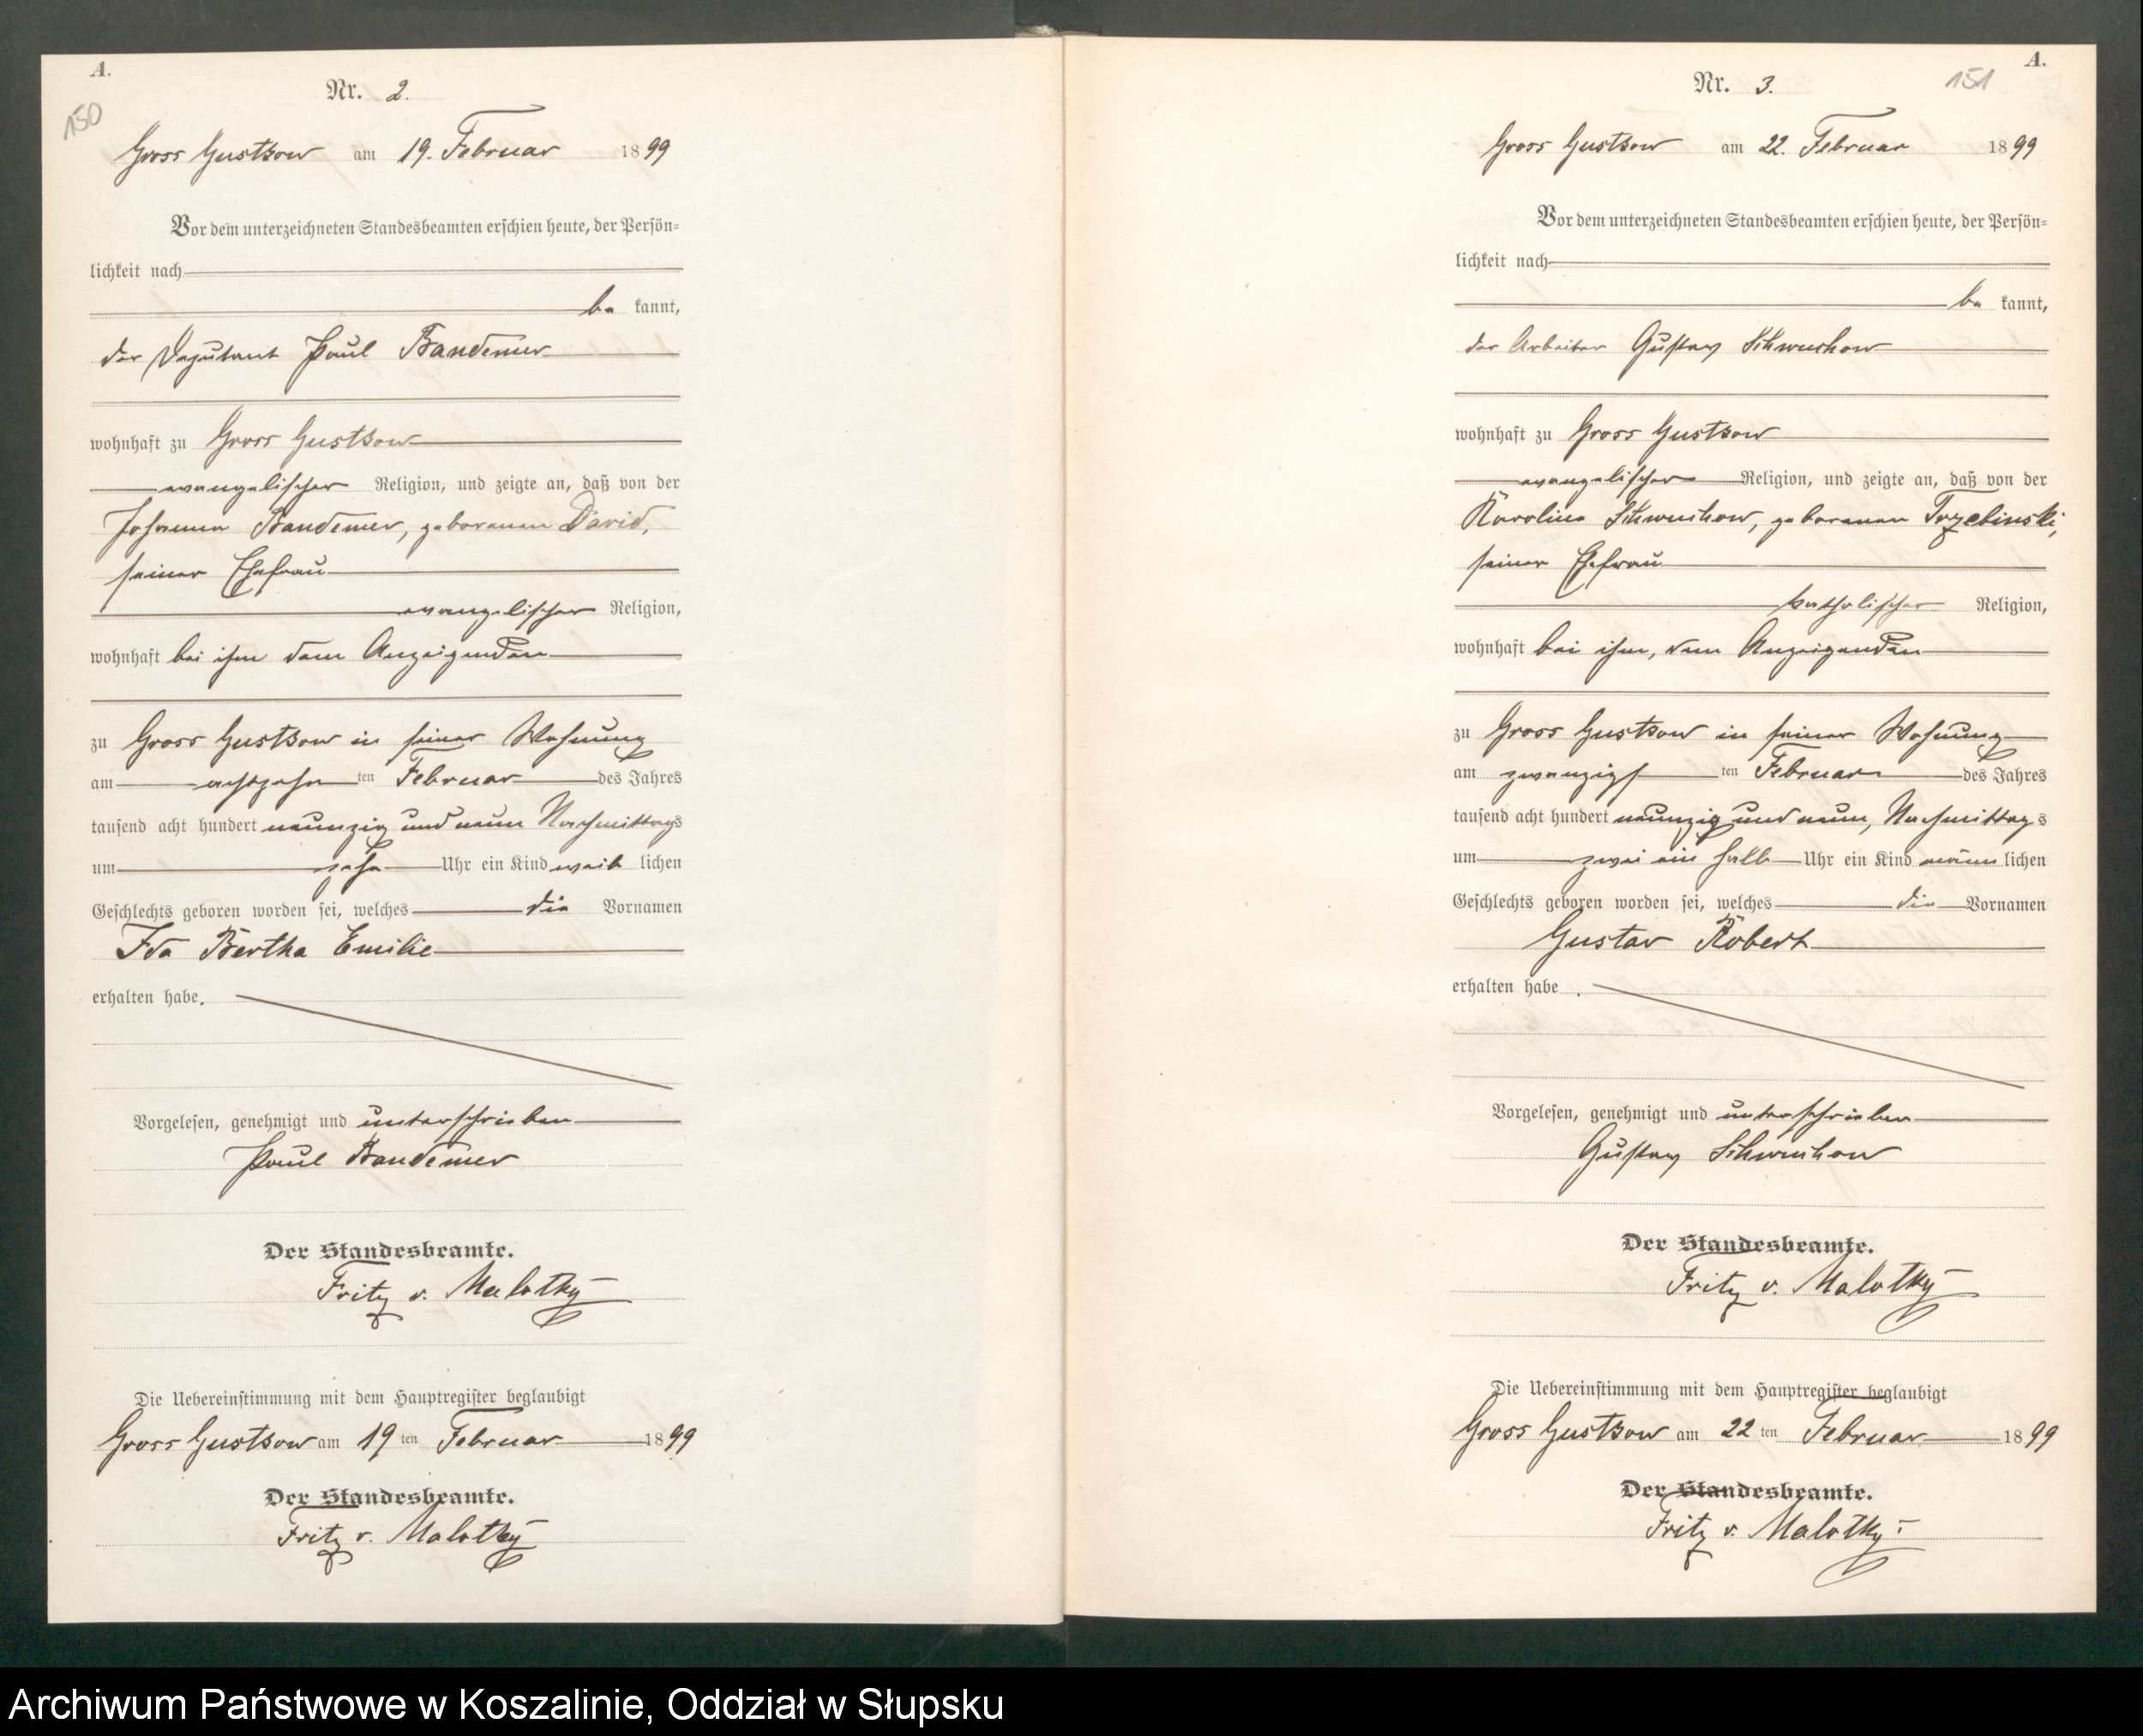 A.
150
Nr. 2.
Gross Gustkow am 19. Februar 1899
Vor dem unterzeichneten Standesbeamten erschien heute, der Persön-
lichkeit nach
be kannt,
der Deputant Paul Bandemer
wohnhaft zu Gross Gustkow
evangelischer Religion, und zeigte an, daß von der
Johanna Bandemer, geborenen David,
seiner Ehefrau
evangelischer Religion,
wohnhaft bei ihm dem Anzeigenden
zu Gross Gustkow in seiner Wohnung
am achtzehn ten Februar des Jahres
tausend acht hundert neunzig und neun Nachmittags
um zehn Uhr ein Kind weib lichen
Geschlechts geboren worden sei, welches die Vornamen
Ida Bertha Emilie
erhalten habe.
Vorgelesen, genehmigt und unterschrieben
Paul Bandemer
Der Standesbeamte.
Fritz v. Malotky
Die Uebereinstimmung mit dem Hauptregister beglaubigt
Gross Gustkow am 19 ten Februar 1899
Der Standesbeamte.
Fritz v. Malotky
A.
151
Nr. 3.
Gross Gustkow am 22. Februar 1899
Vor dem unterzeichneten Standesbeamten erschien heute, der Persön-
lichkeit nach
be kannt,
der Arbeiter Gustav Schwuchow
wohnhaft zu Gross Gustkow
evangelischer Religion, und zeigte an, daß von der
Karoline Schwuchow, geborenen Trzebinski,
seiner Ehefrau
katholischer Religion,
wohnhaft bei ihm, dem Anzeigenden
zu Gross Gustkow in seiner Wohnung
am zwanzigs ten Februar des Jahres
tausend acht hundert neunzig und neun, Nachmittags
um zwei ein halb Uhr ein Kind männ lichen
Geschlechts geboren worden sei, welches die Vornamen
Gustav Robert
erhalten habe.
Vorgelesen, genehmigt und unterschrieben
Gustav Schwuchow
Der Standesbeamte.
Fritz v. Malotky
Die Uebereinstimmung mit dem Hauptregister beglaubigt
Gross Gustkow am 22 ten Februar 1899
Der Standesbeamte.
Fritz v. Malotky
Archiwum Państwowe w Koszalinie, Oddział w Słupsku